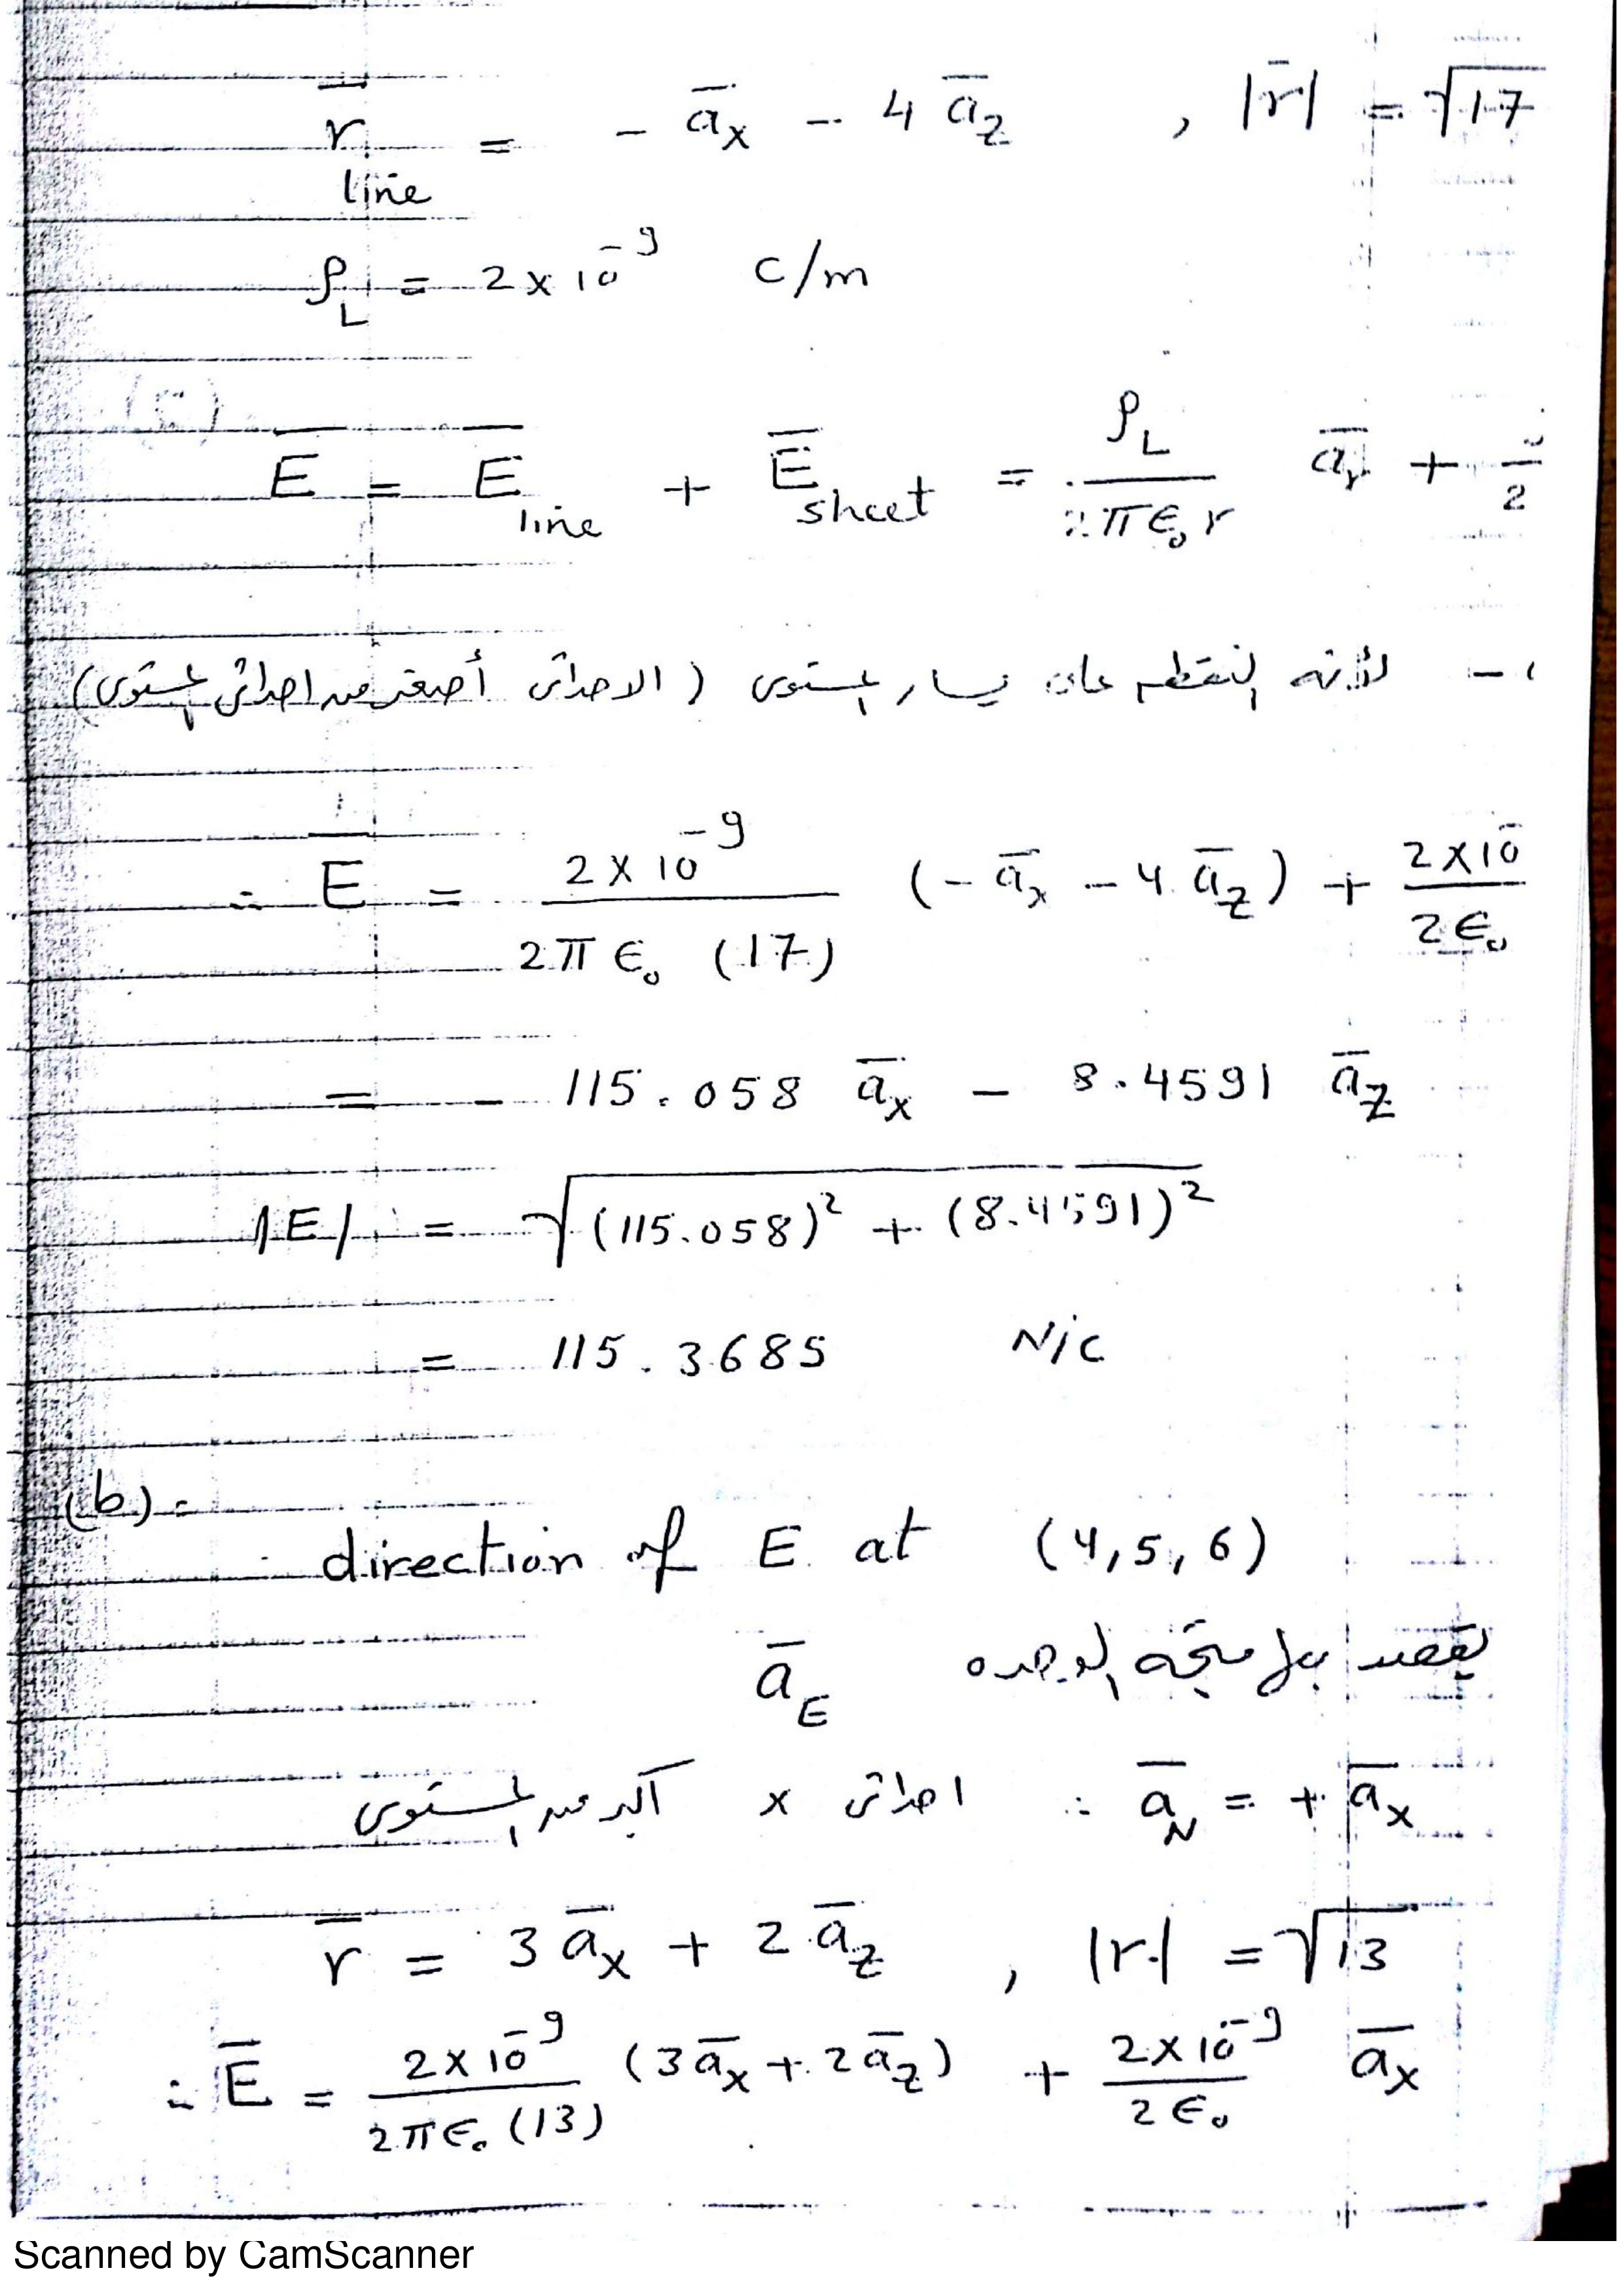 r̄ line = − āx − 4 āz , |r̄| = √17
ρL = 2 × 10⁻⁹ c/m
Ē = Ē line + Ē sheet = ρL / 2πϵ₀r ār +
− لأنه النقطه على يسار المستوى ( الاحداثى أصغر من احداثى المستوى)
∴ Ē = 2 × 10⁻⁹ / 2π ϵ₀ (17) (− āx − 4 āz) + 2 × 10⁻ / 2ϵ₀
= − 115.058 āx − 8.4591 āz
|E| = √(115.058)² + (8.4591)²
= 115.3685 N/C
(b) :
direction of E at (4, 5, 6)
يقصد بها متجه الوحده āE
احداثى x أكبر من المستوى ∴ āN = + āx
r̄ = 3 āx + 2 āz , |r| = √13
∴ Ē = 2 × 10⁻⁹ / 2πϵ₀ (13) (3āx + 2āz) + 2 × 10⁻⁹ / 2ϵ₀ āx
Scanned by CamScanner